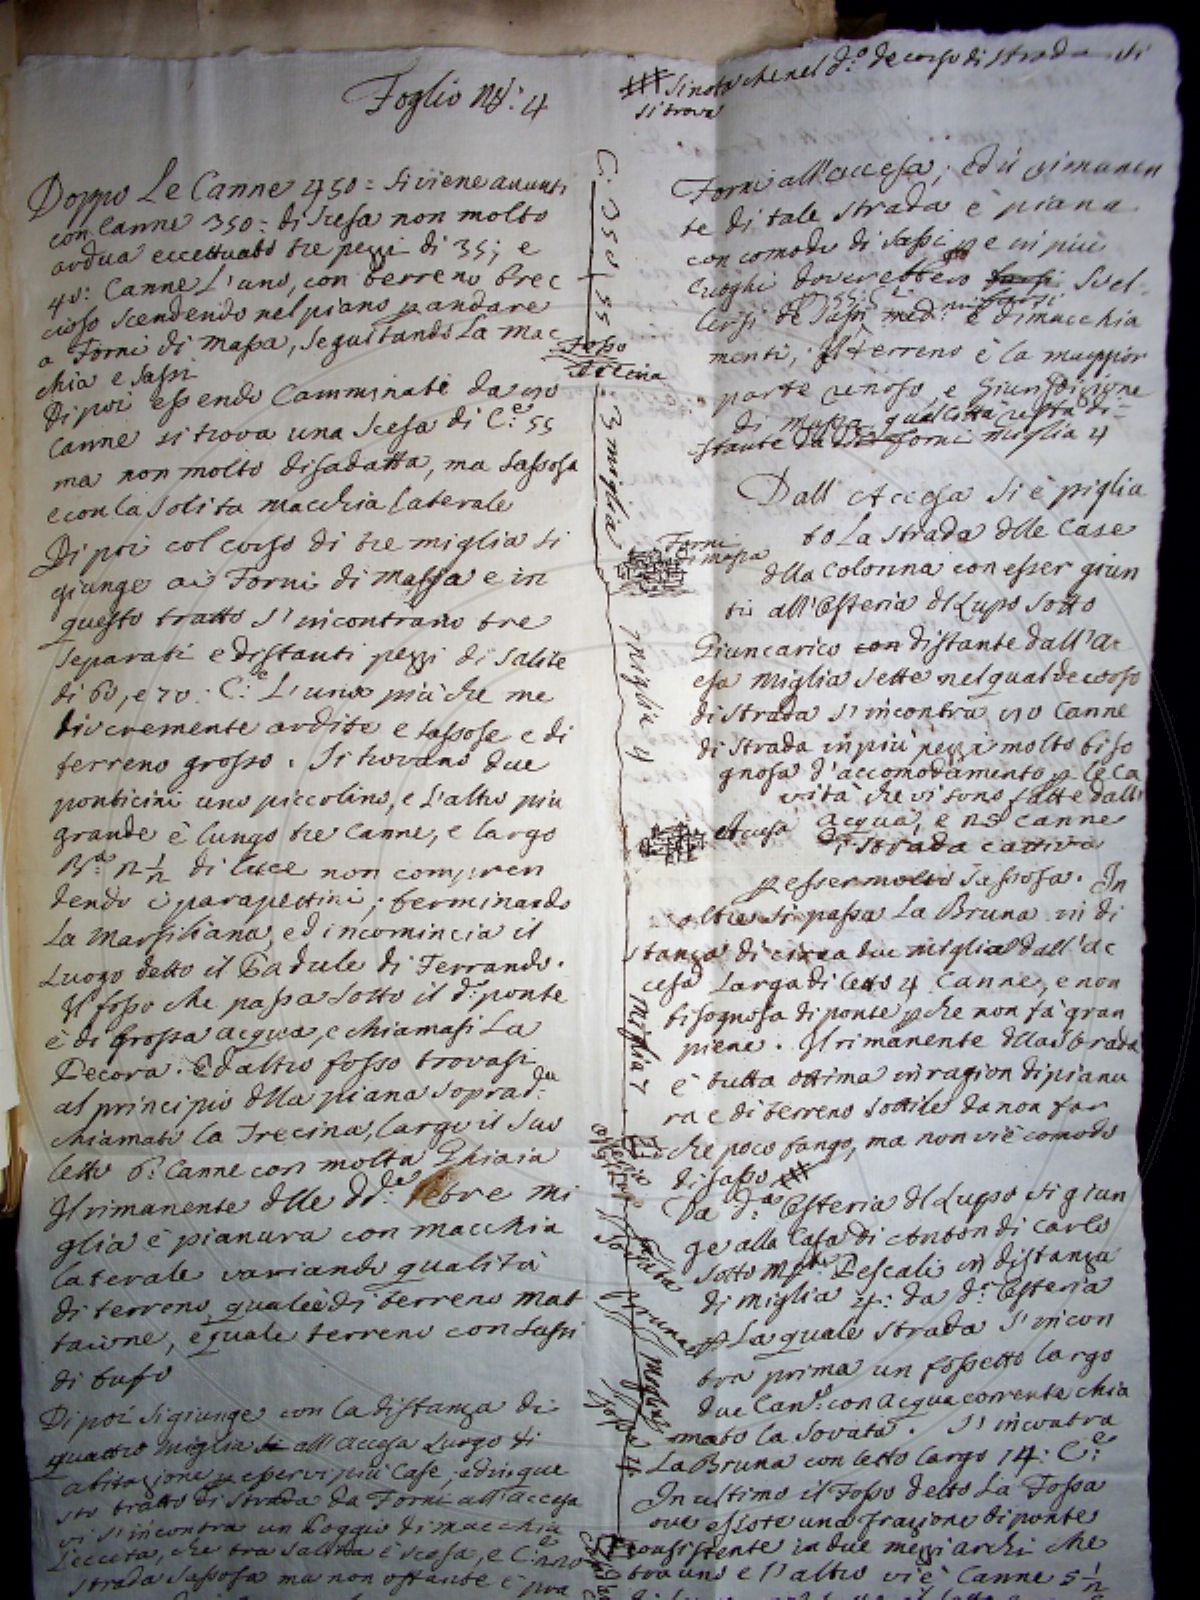 Foglio N.: 4
Doppo Le Canne 450 = si viene avanti
con Canne 350 = di scesa non molto
ardua eccettuato tre pezzi di 35; e
40: Canne L'uno, con terreno brec
cioso scendendo nel piano p andare
a Forni di Massa, seguitando La mac
chia e sassi
Di poi essendo Camminate da 90
Canne si trova una scesa di C.e 55
ma non molto disadatta, ma sassosa
e con la solita macchia laterale
Di poi col corso di tre miglia si
giunge ai Forni di Massa e in
questo tratto s'incontrano tre
separati e distanti pezzi di salite
di 60, e 70: C.e L'uno più che me
diocremente ardite e sassose e di
terreno grosso. Si trovano due
ponticini uno piccolino, e l'altro più
grande è lungo tre Canne, e largo
B.a 12 1/2 di luce non compren
dendo i parapettini; terminando
La Marsiliana, ed incomincia il
Luogo detto il Padule di Ferrando.
Il fosso che passa sotto il d.o ponte
è di grossa acqua, e chiamasi La
Pecora. Ed altro fosso trovasi
al principio dlla piana soprad.a
chiamato la Trecina, largo il suo
letto 6: Canne con molta Ghiaia
Il rimanente dlle dd.e tre mi
glia è pianura con macchia
laterale variando qualità
di terreno, quale è di terreno mat
taione, e quale terreno con sassi
di tufo
Di poi si giunge con la distanza di
quattro miglia all'Accesa Luogo di
abitazione p esservi più Case, ed in que
sto tratto di strada da Forni all'Accesa
vi s'incontra un Poggio di macchia
Lecceta, che tra salita e scesa, e C.e
strada sassosa ma non ostante è pra
C. 350
55
Fosso
Trecina
3 miglia
Forni
di Massa
miglia 4
Accesa
miglia 7
Si nota che nel d.o decorso di strada vi
si trova
Forni all'Accesa; ed il rimanen
te di tale strada è piana
con comodo di sassi, p e in più
luoghi doverebbero farsi svel
lersi de sassi med.mi e di macchia
menti, Il terreno è la maggior
parte renoso, e Giurisdizione
di Massa, qual Città resta di=
stante da Forni miglia 4
Dall'Accesa si è piglia
to La strada dlle Case
dlla Colonna con esser giun
ti all'Osteria dl Lupo sotto
Giuncarico distante dall'Ac
cesa miglia sette nel qual decorso
di strada s'incontra 90 Canne
di strada in più pezzi molto biso
gnosa d'accomodamento p le ca
vità che vi sono fatte dall'
acqua, e 25 Canne
di strada cattiva
p esser molto sassosa. In
oltre si passa La Bruna in di
stanza di circa due miglia dall'Ac
cesa Larga di letto 4 Canne, e non
bisognosa di ponte p che non fà gran
piene. Il rimanente dlla strada
è tutta ottima in ragion di pianu
ra e di terreno sottile da non far
che poco fango, ma non vi è comodo
di sasso
Da d.a Osteria dl Lupo si giun
ge alla Casa di Anton di Carlo
sotto Pescali in distanza
di miglia 4: da d.a Osteria
La quale strada s'incon
tra prima un fossetto largo
due Can.e con acqua corrente chia
mato la Sovata. S'incontra
La Bruna con letto largo 14: C.e
In ultimo il Fosso detto La Fossa
ove esiste una frazione di ponte
consistente in due mezzi archi che
tra uno e l'altro vi è Canne 5 1/2